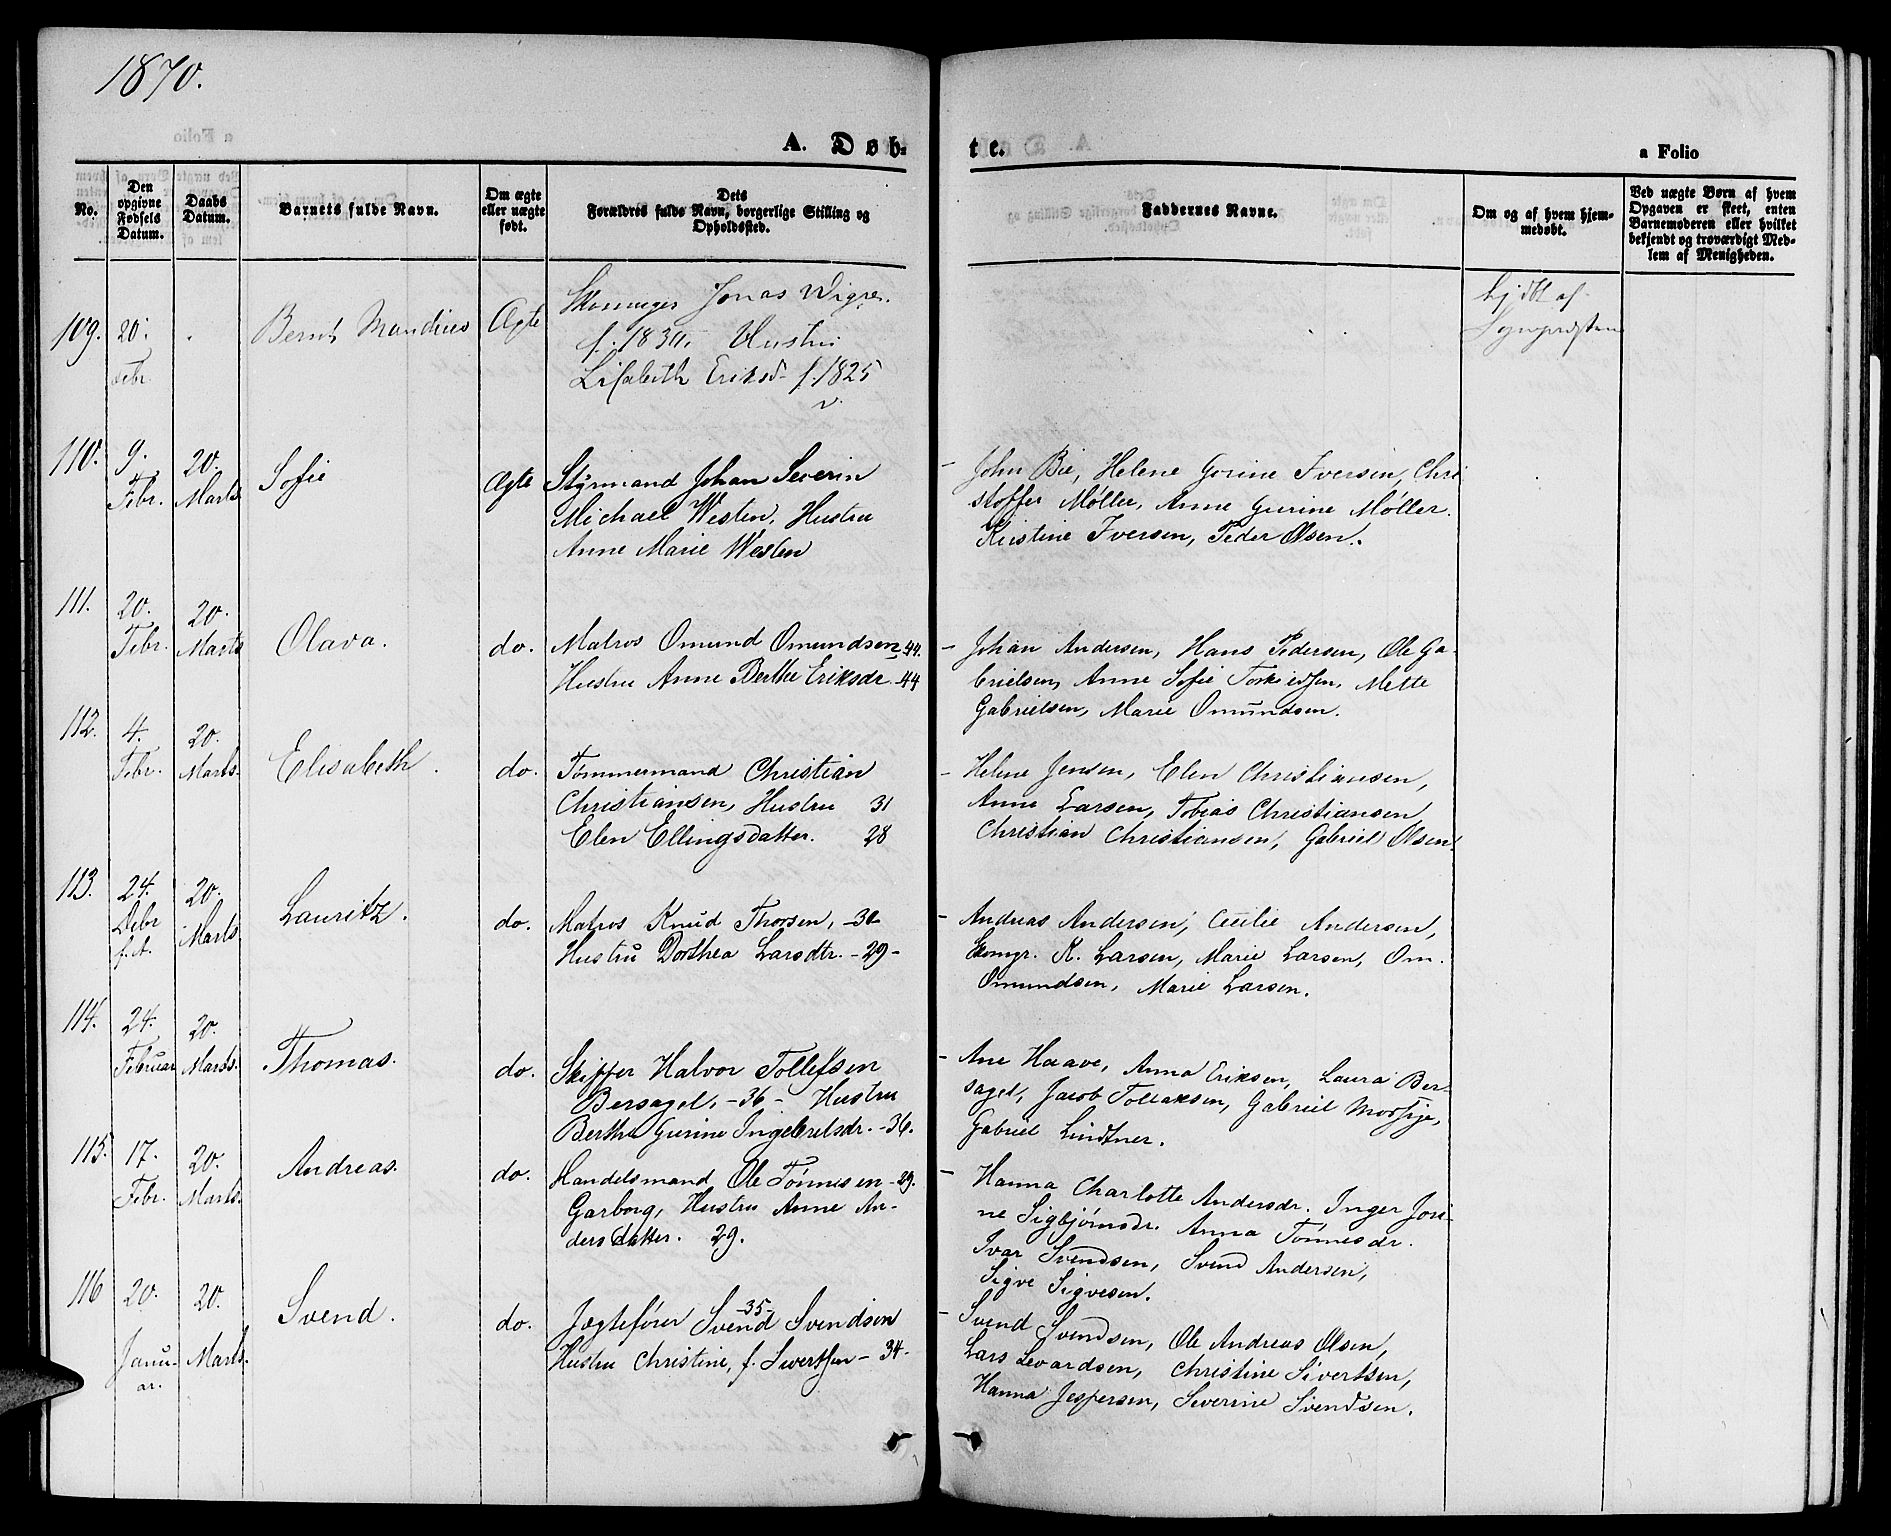 1870.
A. Døb-
te.
a Folio
No.
Den opgivne Fødsels Datum.
Daabs Datum.
Barnets fulde Navn.
Om ægte eller uægte født.
Dets Forældres fulde Navn, borgerlige Stilling og Opholdssted.
Faddernes Navne.
Om og af hvem hjemmedøbt.
Ved uægte Børn af hvem Opgaven er skeet, enten Barnemoderen eller hvilket bekjendt og troværdigt Medlem af Menigheden.
109. 20. Febr. Bernt Mandius Ægte Skomager Jonas Wigre.
f. 1830, Hustru
Lisabeth Eriksd. f. 1825
hjdbt af
110. 9. Febr. 20. Marts Sofie Ægte Styrmand Johan Severin
Michael Westen, Hustru
Anne Marie Westen
- John Bie, Helene Gorine Iversen, Chri
stoffer Møller, Anne Gurine Møller.
Kristine Iversen, Peder Olsen.
111. 20. Febr. 20. Marts Olava. do. Matros Omund Omundsen 44.
Hustru Anne Berthe Eriksdr. 44
- Johan Andersen, Hans Pedersen, Ole Ga-
brielsen, Anne Sofie Torkildsen, Mette
Gabrielsen, Marie Omundsen.
112. 4. Febr. 20. Marts. Elisabeth. do. Tømmermand Christian
Christiansen, Hustru 31
Elen Ellingsdatter. 28
- Helene Jensen, Elen Christiansen,
Anne Larsen, Tobias Christiansen
Christian Christiansen, Gabriel Olsen.
113. 24. Debr f. A. 20. Marts. Lauritz. do. Matros Knud Thorsen, -31-
Hustru Dorthea Larsdtr. -29-
- Andreas Andersen, Cecilie Andersen,
Skomgr. K. Larsen, Marie Larsen, Om.
Omundsen, Marie Larsen.
114. 24. Februar 20. Marts. Thomas. do. Skipper Halvor Tollefsen
Bersagel. -36- Hustru
Berthe Gurine Ingebretsdr. -36.
- Ane Haave, Anna Eriksen, Laura Ber-
sagel, Jacob Tollaksen, Gabriel Mossige,
Gabriel Lindtner.
115. 17. Febr. 20. Marts. Andreas. do. Handelsmand Ole Tønnesen -29.
Garborg, Hustru Anne An-
dersdatter. 29.
- Hanna Charlotte Andersdr. Inger Jori-
ne Sigbjørnsdr. Anna Tønnesdr.
Ivar Svendsen, Svend Andersen,
Sigve Sigvesen.
116 20. Janu-
ar. 20. Marts. Svend. do. Jægtefører Svend -35- Svendsen
Hustru Christine, f. Sivertsen - 34-
- Svend Svendsen, Ole Andreas Olsen,
Lars Levardsen, Christine Sivertsen,
Hanna Jespersen, Severine Svendsen.